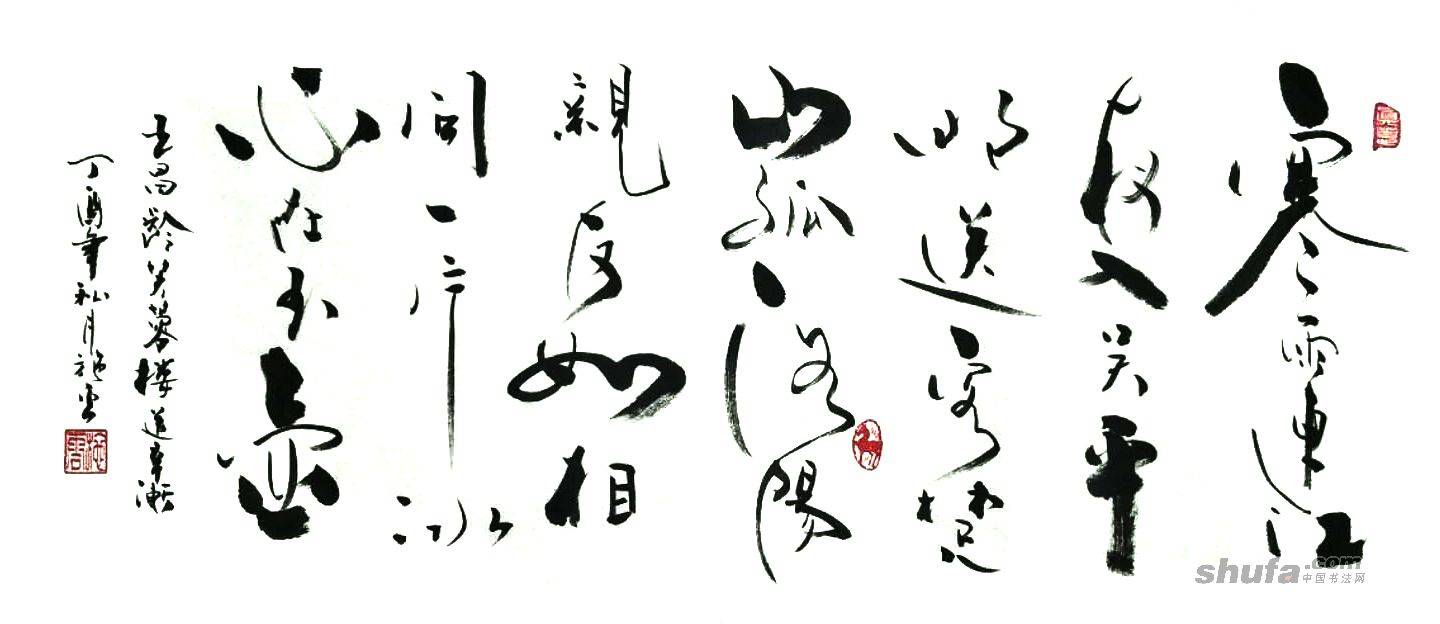 寒雨連江
夜入吴平
明送客楚
山孤洛陽
親友如相
问一片冰
心在玉壺
王昌齡芙蓉楼送辛漸
丁酉年秋月
shufa.com
中国书法网